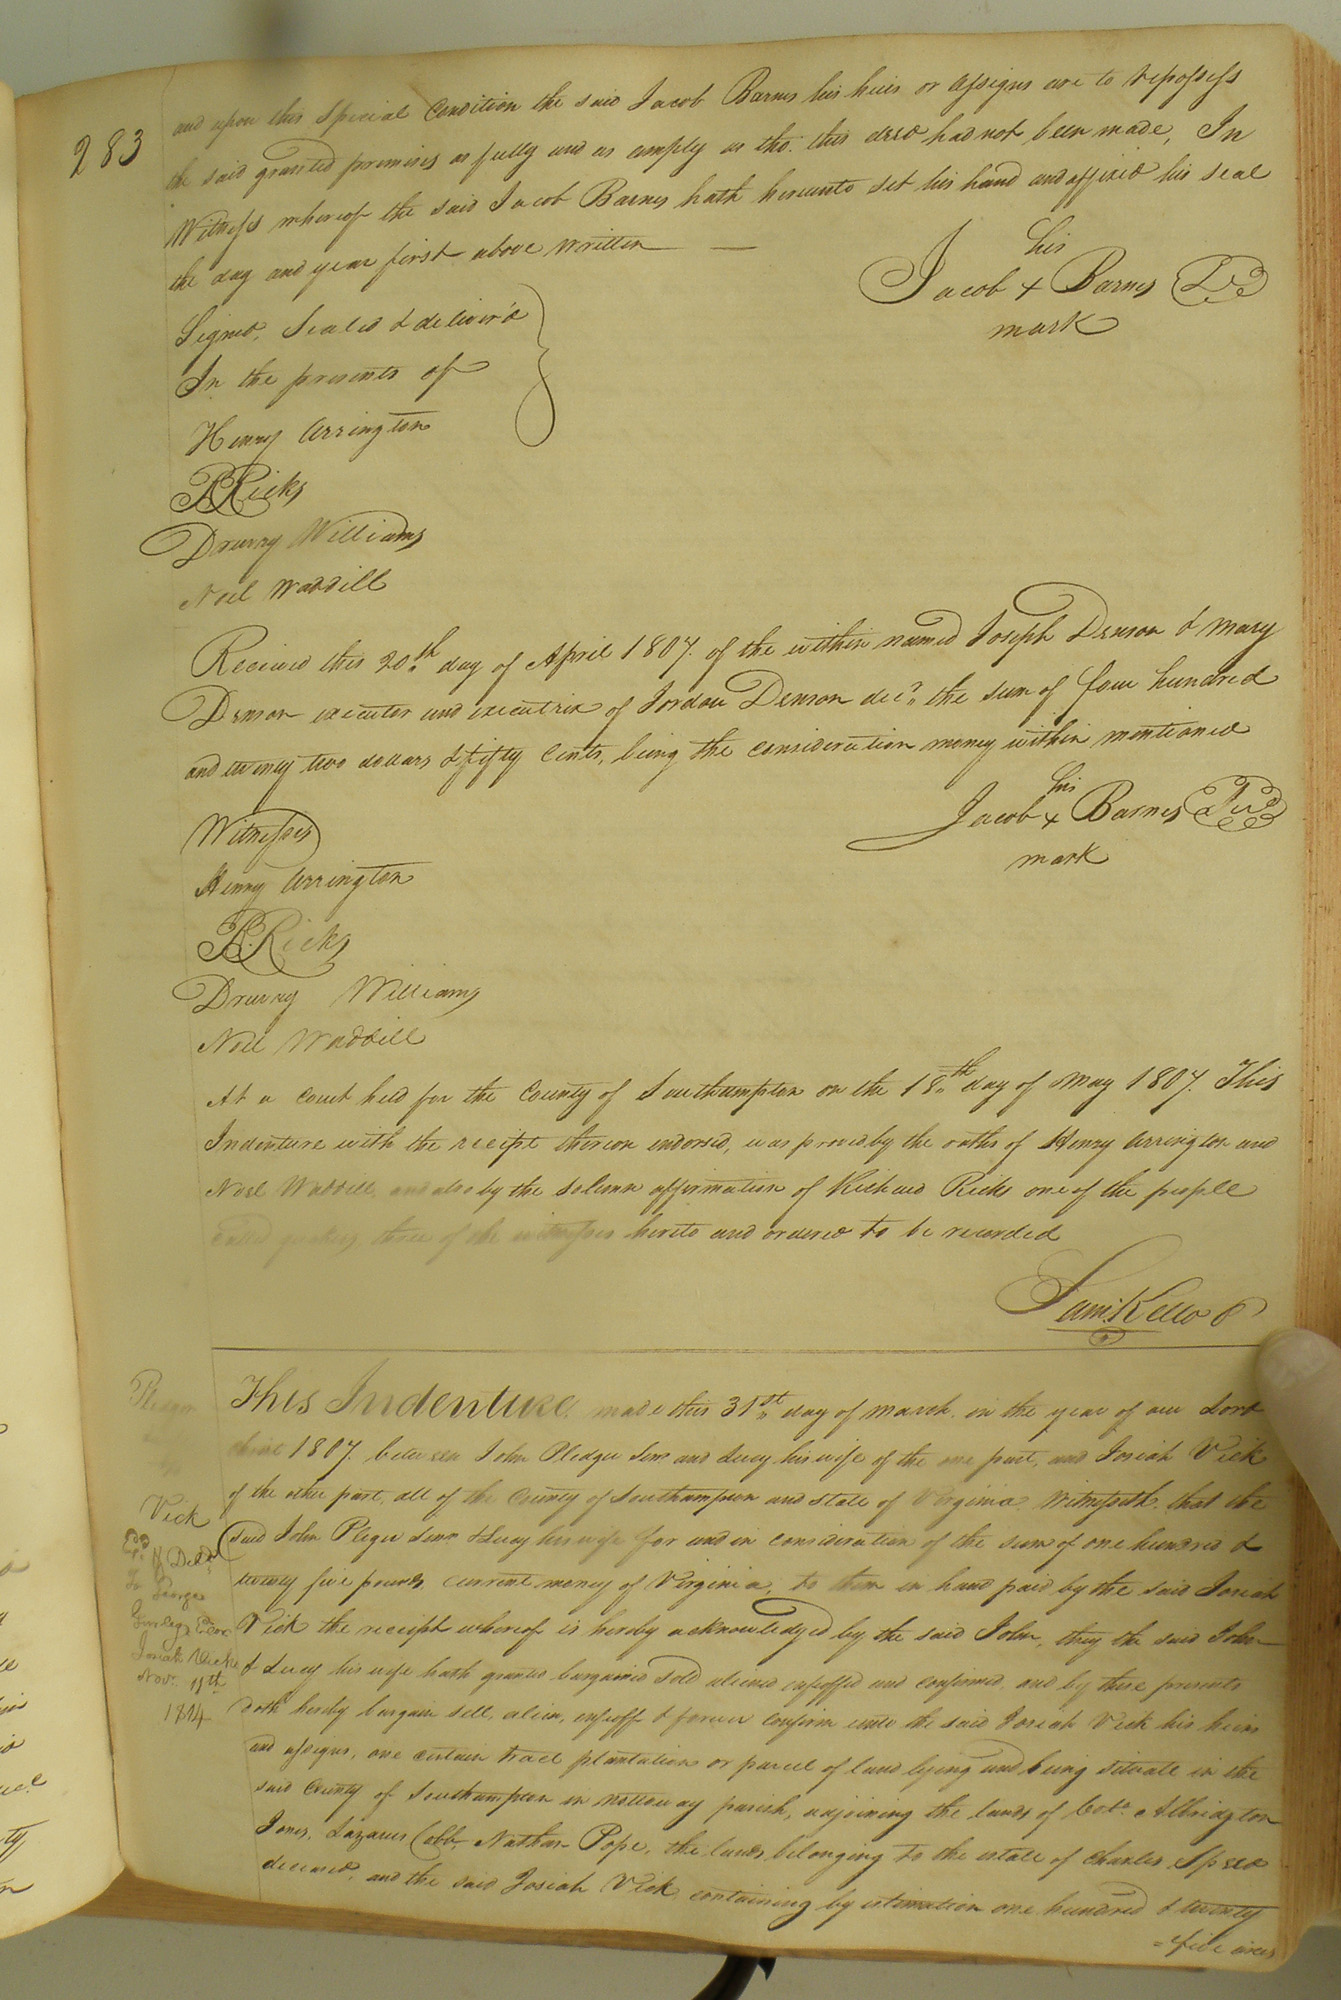 283
and upon this special Condition the said Jacob Barnes his heirs or assigns are to repossess
the said granted premises as fully and as amply as tho. this deed had not been made, In
Witness whereof the said Jacob Barnes hath hereunto set his hand and affixed his seal
the day and year first above written
his
Jacob + Barnes
mark
Signed, Sealed & deliver'd
In the presents of
Henry Arrington
R Ricks
Drewry Williams
Noel Waddill
Received this 20th day of April 1807. of the within named Joseph Denson & Mary
Denson executor and executrix of Jordan Denson decd. the sum of four hundred
and twenty two dollars & fifty Cents, being the consideration money within mentioned
his
Jacob + Barnes
mark
Witnesses
Henry Arrington
R. Ricks
Drewry Williams
Noel Waddill
At a Court held for the County of Southampton on the 18th day of May 1807. This
Indenture with the receipt thereon endorsed, was proved by the oaths of Henry Arrington and
Noel Waddill, and also by the solemn affirmation of Richard Ricks one of the people
called quakers three of the witnesses hereto and ordered to be recorded
Sam: Kello
This Indenture made this 31st day of March in the year of our Lord
1807. between John Pledger Senr and Lucy his wife of the one part, and Josiah Vick
of the other part, all of the County of Southampton and state of Virginia Witnesseth that the
said John Pleger Senr & Lucy his wife for and in consideration of the sum of one hundred &
twenty five pounds current money of Virginia, to them in hand paid by the said Josiah
Vick the receipt whereof is hereby acknowledged by the said John, they the said John
& Lucy his wife hath granted bargained sold aliened enfeoffed and confirmed and by these presents
doth hereby bargain sell, alien, enfeoff & forever confirm unto the said Josiah Vick his heirs
and assigns, one certain tract plantation or parcel of land lying and being situate in the
said County of Southampton in nottoway parish, adjoining the lands of Colo. Albridgton
Jones, Lazarus Cobb, Nathan Pope, the lands belonging to the estate of Charles Speed
deceased, and the said Josiah Vick containing by estimation one hundred & twenty
=five acres
Pledger
Vick
Exd & Deld
To George
Gurley Exor
Josiah Vick
Nov. 11th
1814